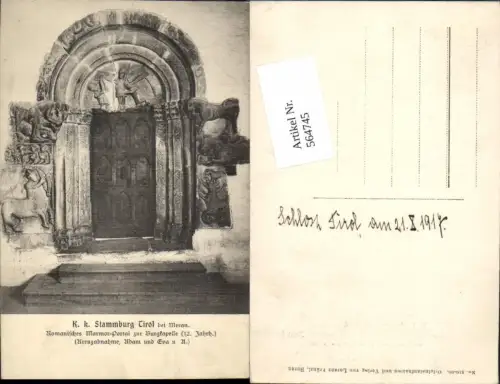 K. k. Stammburg Tirol bei Meran.
Romanisches Marmor-Portal zur Burgkapelle (12. Jahrh.)
(Kreuzabnahme, Adam und Eva u. A.)
Artikel Nr.
564745
Schloss Tirol, am 21.X.1917.
und Verlag von Lorenz Fränzl, Meran